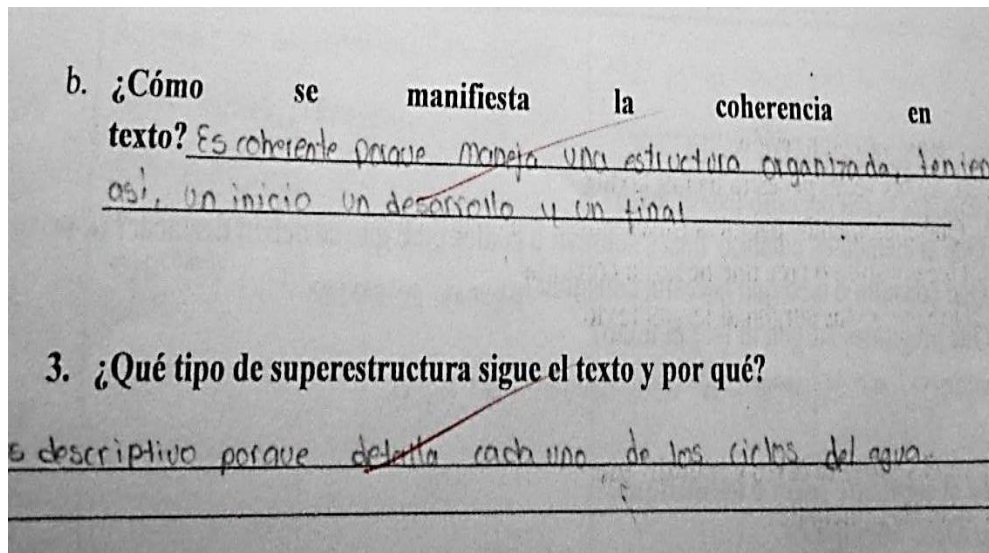 b. ¿Cómo se manifiesta la coherencia en
texto? Es coherente porque maneja una estructura organizada, tenien
así, un inicio un desarrollo y un final
3. ¿Qué tipo de superestructura sigue el texto y por qué?
s descriptivo porque detalla cada uno de los ciclos del agua.